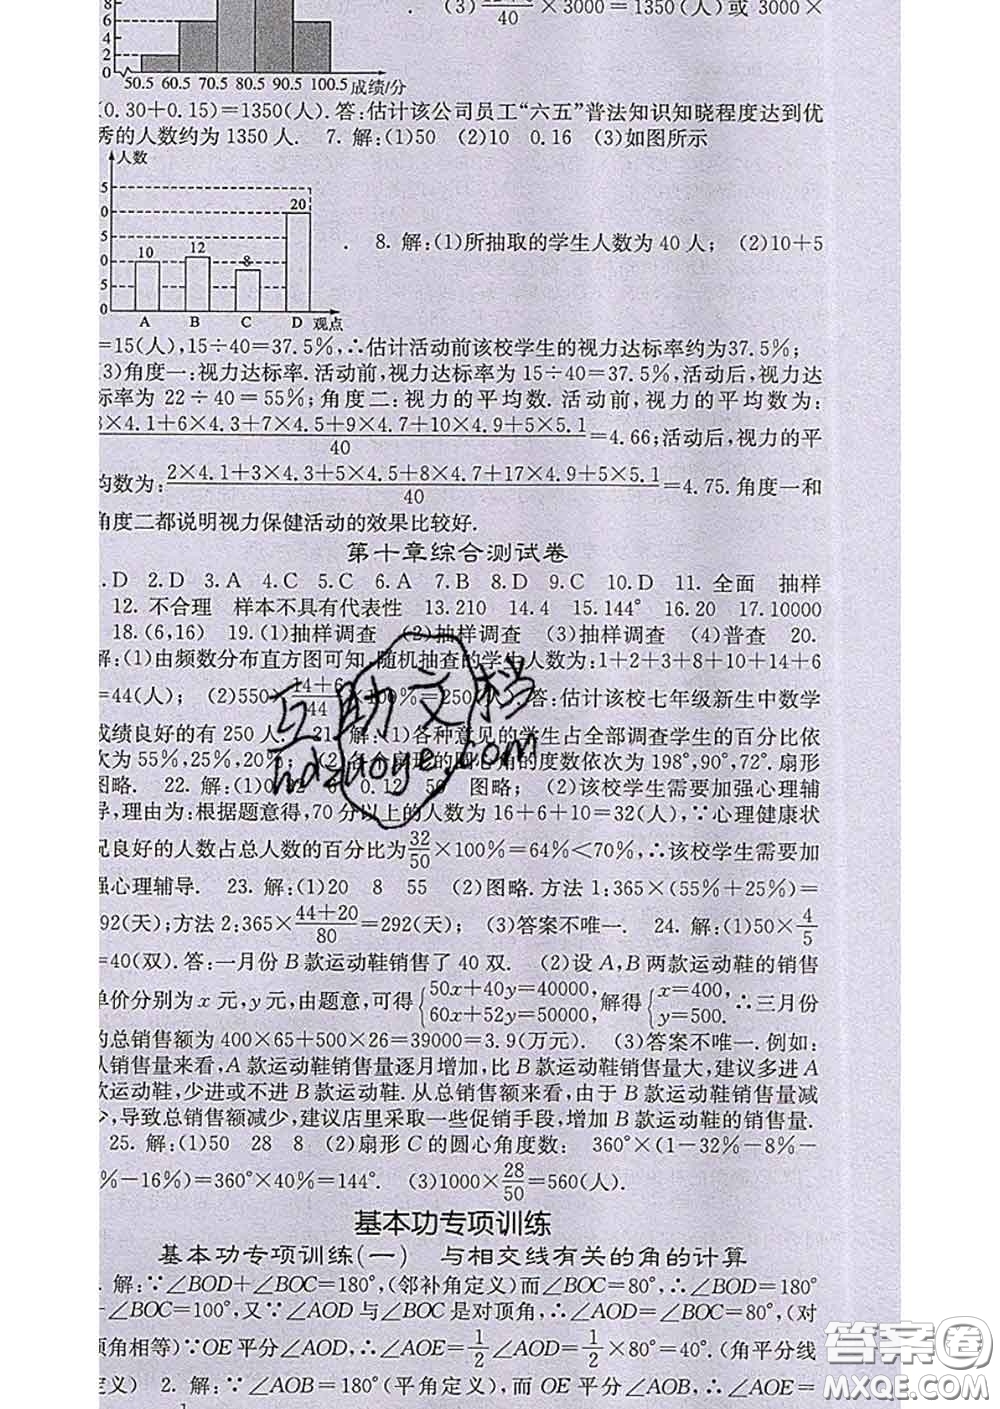 8
6
4
2
0
50.5 60.5 70.5 80.5 90.5 100.5 成绩/分
(3) /40×3000=1350(人)或 3000×
(0.30+0.15)=1350(人).答:估计该公司员工“六五”普法知识知晓程度达到优
秀的人数约为 1350 人. 7. 解:(1)50 (2)10 0.16 (3)如图所示
人数
5
0
5
0
5
0
10 12 8 20
A B C D 观点
. 8. 解:(1)所抽取的学生人数为 40 人; (2)10+5
=15(人),15÷40=37.5%,∴估计活动前该校学生的视力达标率约为37.5%;
(3)角度一:视力达标率.活动前,视力达标率为 15÷40=37.5%,活动后,视力达
标率为 22÷40=55%;角度二:视力的平均数.活动前,视力的平均数为:
3×4.1+6×4.3+7×4.5+9×4.7+10×4.9+5×5.1/40=4.66;活动后,视力的平
均数为:2×4.1+3×4.3+5×4.5+8×4.7+17×4.9+5×5.1/40=4.75.角度一和
角度二都说明视力保健活动的效果比较好.
第十章综合测试卷
.D 2.D 3.A 4.C 5.C 6.A 7.B 8.D 9.C 10.D 11. 全面 抽样
12. 不合理 样本不具有代表性 13.210 14.4 15.144° 16.20 17.10000
18.(6,16) 19.(1)抽样调查 (2)抽样调查 (3)抽样调查 (4)普查 20.
解:(1)由频数分布直方图可知,随机抽查的学生人数为:1+2+3+8+10+14+6
=44(人); (2)550×14+6/44×100%=250(人).答:估计该校七年级新生中数学
成绩良好的有 250 人. 21. 解:(1)各种意见的学生占全部调查学生的百分比依
次为55%,25%,20%; (2)各个扇形的圆心角的度数依次为 198°,90°,72°.扇形
图略. 22. 解:(1)0.02 6 0.12 50 图略; (2)该校学生需要加强心理辅
导,理由为:根据题意,70 分以上的人数为 16+6+10=32(人),∵心理健康状
况良好的人数占总人数的百分比为32/50×100%=64%<70%,∴该校学生需要加
强心理辅导. 23. 解:(1)20 8 55 (2)图略.方法 1:365×(55%+25%)=
292(天);方法 2:365×44+20/80=292(天); (3)答案不唯一. 24. 解:(1)50×4/5
=40(双).答:一月份 B 款运动鞋销售了 40 双. (2)设 A,B 两款运动鞋的销售
单价分别为 x 元,y 元,由题意,可得{50x+40y=40000, 60x+52y=50000,解得{x=400, y=500.∴三月份
的总销售额为 400×65+500×26=39000=3.9(万元). (3)答案不唯一.例如:
从销售量来看,A 款运动鞋销售量逐月增加,比 B 款运动鞋销售量大,建议多进 A
款运动鞋,少进或不进 B 款运动鞋.从总销售额来看,由于 B 款运动鞋销售量减
少,导致总销售额减少,建议店里采取一些促销手段,增加 B 款运动鞋的销售量.
25. 解:(1)50 28 8 (2)扇形 C 的圆心角度数: 360°×(1-32%-8%-
%-16%)=360°×40%=144°. (3)1000×28/50=560(人).
基本功专项训练
基本功专项训练(一) 与相交线有关的角的计算
. 解:∵∠BOD+∠BOC=180°,(邻补角定义)而∠BOC=80°,∴∠BOD=180°
-∠BOC=100°,又∵∠AOD 与∠BOC 是对顶角,∴∠AOD=∠BOC=80°,(对
顶角相等)∵OE 平分∠AOD,∴∠AOE=1/2∠AOD=1/2×80°=40°.(角平分线
定义) 2. 解:∵∠AOB=180°(平角定义),而 OE 平分∠AOB,∴∠AOE=
1
互助文档
hdzuoye.com
答案圈
MXQE.COM